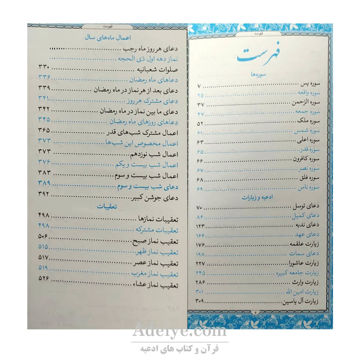 فهرست
سوره‌ها
سوره یس ۷
سوره واقعه
سوره الرحمن ۳۷
سوره
سوره ملک ۵۲
سوره شمس ۶۱
سوره اعلی ۶۳
سوره قدر
سوره کافرون ۶۶
سوره نصر ۶۷
سوره فلق ۶۸
سوره ناس ۶۹
ادعیه و زیارات
دعای توسل
دعای کمیل ۸۶
دعای ندبه ۱۲۳
دعای عهد
زیارت علقمه ۱۷۷
دعای سمات ۱۹۸
زیارت عاشورا ۲۲۷
زیارت جامعه کبیره ۲۴۵
زیارت وارث ۲۸۶
زیارت امین الله
زیارت آل یاسین ۳۰۹
فهرست
اعمال ماه‌های سال
دعای هر روز ماه رجب
نماز دهه اول ذی الحجه
صلوات شعبانیه ۳۳۰
دعاهای ماه رمضان ۳۳۶
دعای بعد از هر نماز در ماه رمضان ۳۳۹
دعای مشترک هر روز ۳۴۱
دعای ما بین نماز در ماه رمضان ۳۴۲
دعاهای روزهای ماه رمضان ۳۴۵
اعمال مشترک شب‌های قدر ۳۶۵
اعمال مخصوص این شب‌ها ۳۷۳
اعمال شب نوزدهم ۳۷۳
اعمال شب بیست و یکم ۳۷۶
اعمال شب بیست و سوم ۳۸۳
دعای شب بیست و سوم ۳۸۹
دعای جوشن کبیر ۳۹۲
تعقیبات
تعقیبات نمازها ۴۹۸
تعقیبات مشترکه ۴۹۸
تعقیب نماز صبح ۵۰۶
تعقیب نماز ظهر ۵۱۵
تعقیب نماز عصر ۵۱۷
تعقیب نماز مغرب ۵۱۹
تعقیب نماز عشاء ۵۲۶
Adeiye.com
قرآن و کتاب های ادعیه